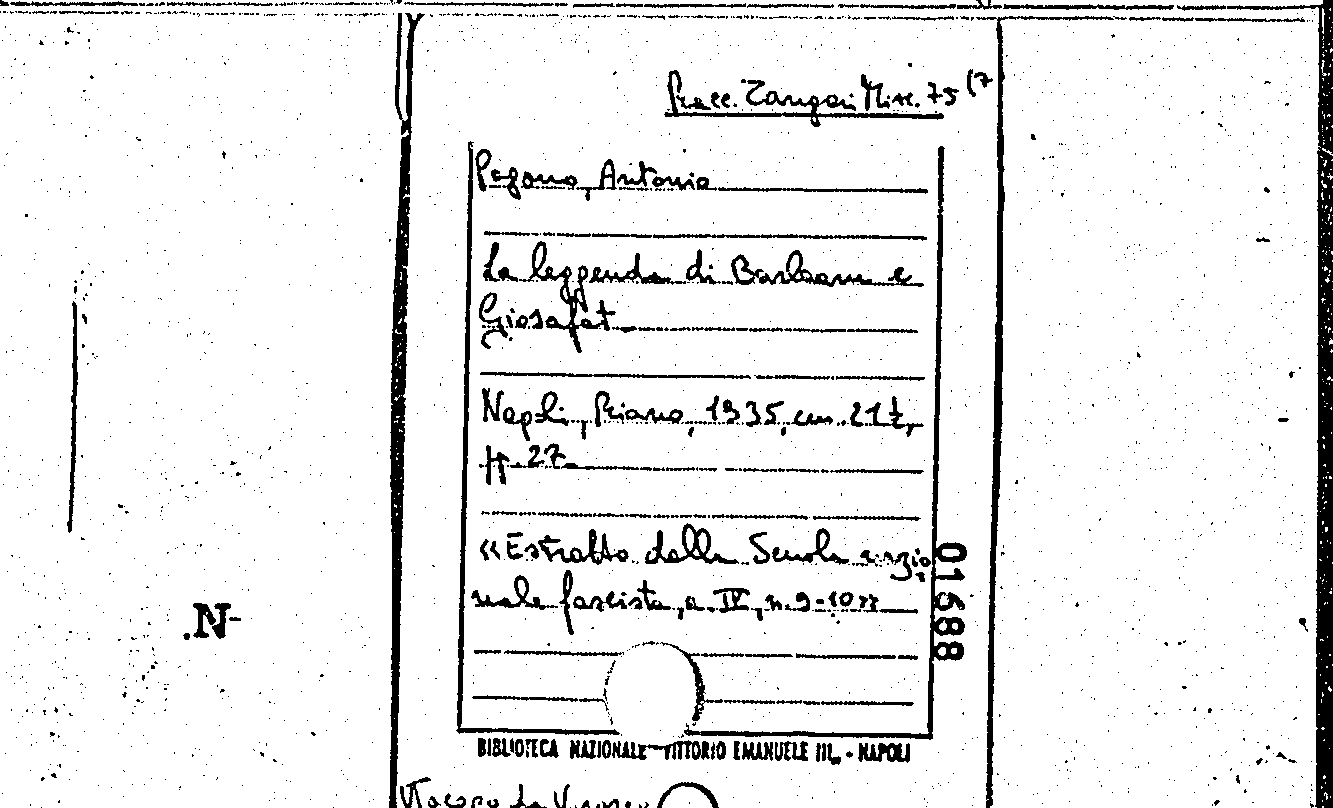 Racc. Zangari Misc. 75 (7
Pagano, Antonio
La leggenda di Barlaam e
Giosafat.
Napoli, Priano, 1935, cm. 21½,
pp. 27.
«Estratto dalla Scuola nazio
nale fascista, a. IV, n. 9-10»
01688
N-
BIBLIOTECA NAZIONALE VITTORIO EMANUELE III, - NAPOLI